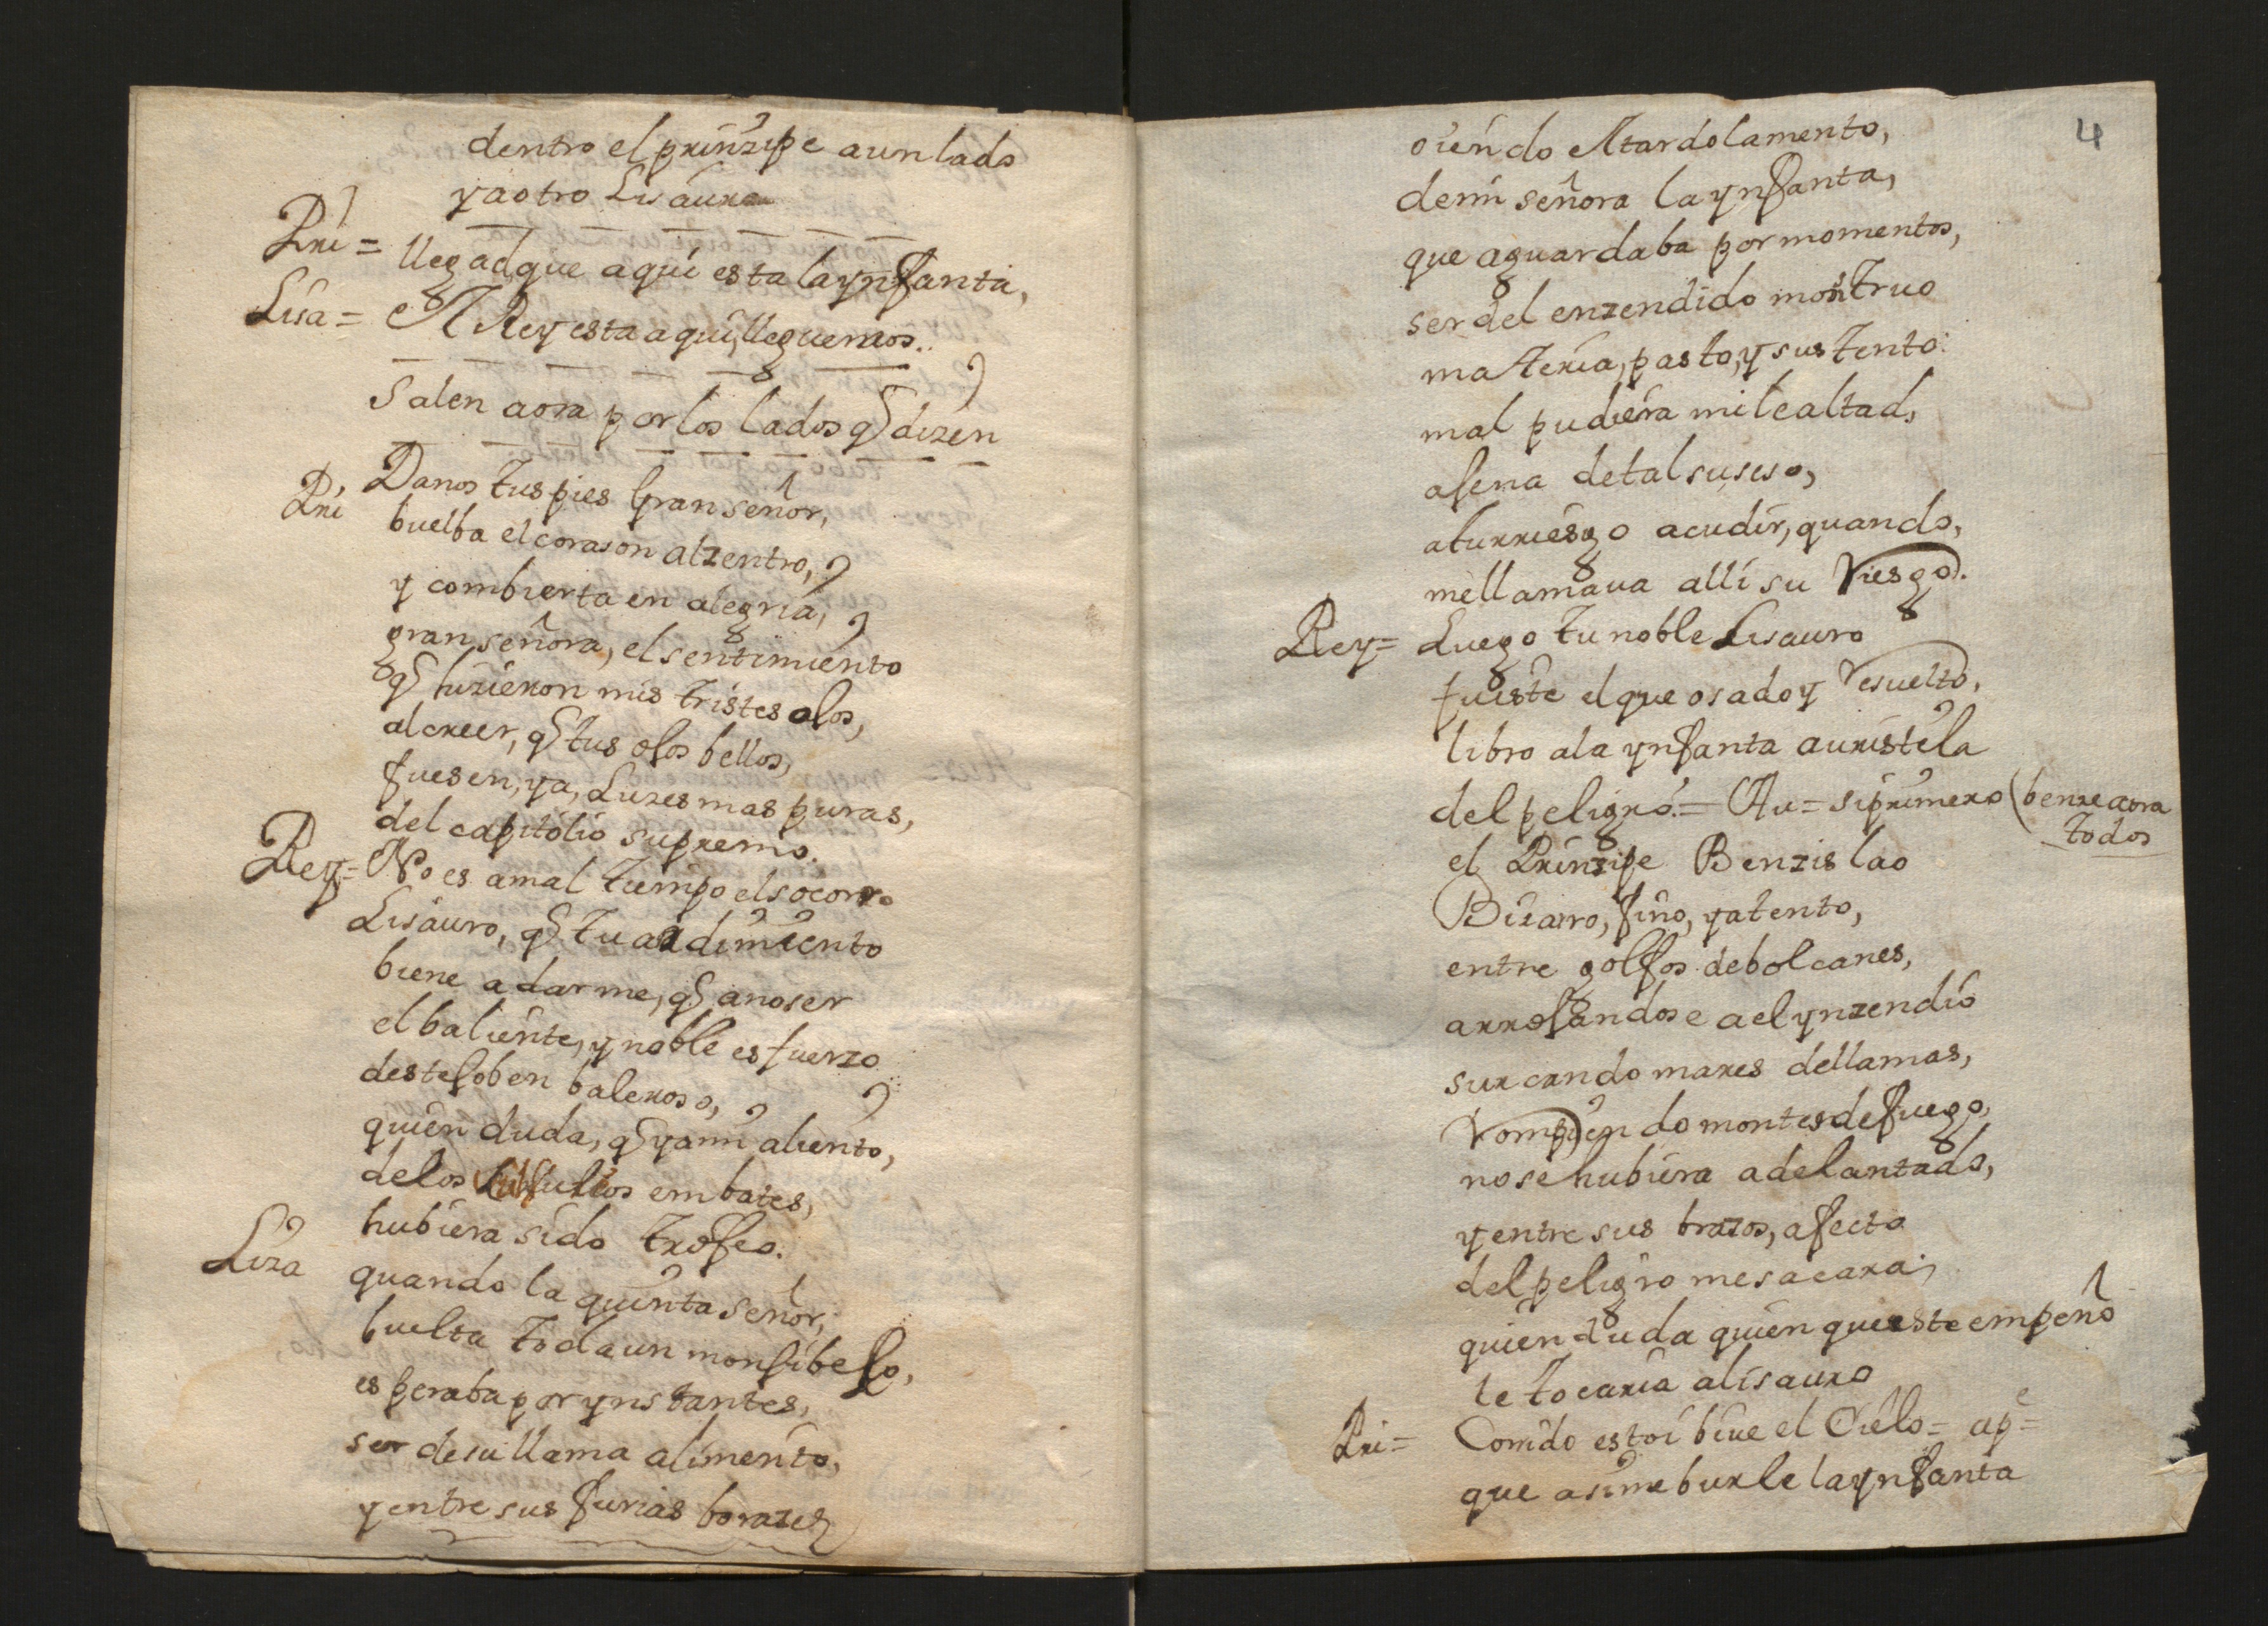 dentro el prinzipe aun lado
y a otro Lisauro
Pri = llegad que aqui esta la ynfanta,
Lisa = El Rey esta aqui, lleguemos.
Salen aora por los lados q dizen
Pri Danos tus pies Gran señor,
buelba el corason al zentro,
y combierta en alegria,
gran señora, el sentimiento
q hizieron mis tristes ojos,
al creer, q tus ojos bellos,
fuesen, ya, Luzes mas puras,
del capitolio supremo.
Rey = No es a mal tiempo el socorro
Lisauro, q tu ardimiento
biene a darme, q a no ser
el baliente, y noble esfuerzo
deste joben baleroso,
quien duda, q ya mi aliento,
de los embates,
hubiera sido trofeo.
Liza quando la quinta señor,
buelta toda un monjibelo,
esperaba por ynstantes,
ser de su llama alimento,
y entre sus furias borazes
4
oiendo el tardo lamento,
de mi señora la ynfanta,
que aguardaba por momentos,
ser del enzendido monstruo
materia, pasto, y sustento:
mal pudiera mi lealtad,
ajena de tal suseso,
a tu rriesgo acudir, quando,
me llamaua alli su Riesgo.
Rey = Luego tu noble Lisauro
fuiste el que osado y Resuelto,
libro a la ynfanta auristela
del peligro. = Au = si primero (benze aora
todos
el Prinzipe Benzislao
Bizarro, fino, y atento,
entre golfos de bolcanes,
arrojandose a el ynzendio
surcando mares de llamas,
Rompiendo montes de fuego,
no se hubiera adelantado,
y entre sus brazos, afecto
del peligro me sacara,
quien duda quien que este empeño
le tocaria a lisauro
Pri = Corrido estoi biue el Cielo = ap =
que asi me burle la ynfanta